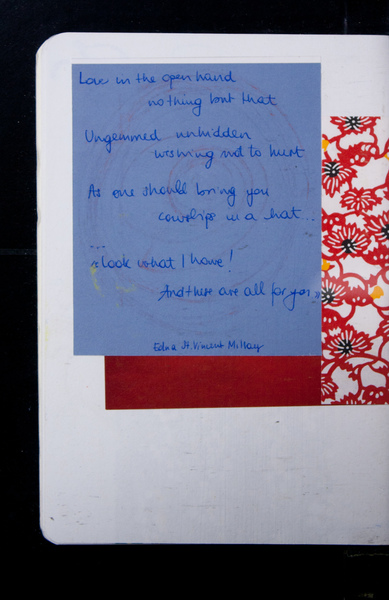 Love in the open hand
nothing but that
Ungemmed unhidden
wishing not to hurt
As one should bring you
cowslips in a hat...
...
"look what I have!
And these are all for you"
Edna St. Vincent Millay